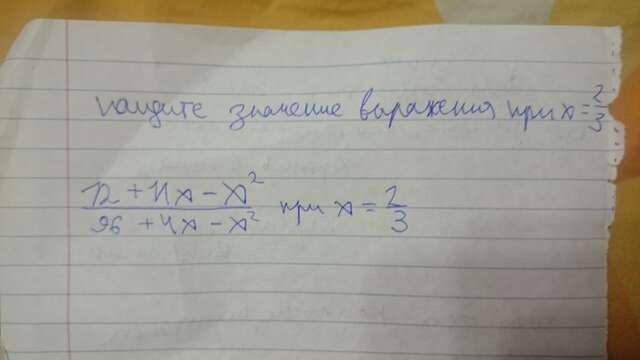 найдите значение выражения при x = 2/3
12 + 11x - x²
96 + 4x - x² при x = 2/3